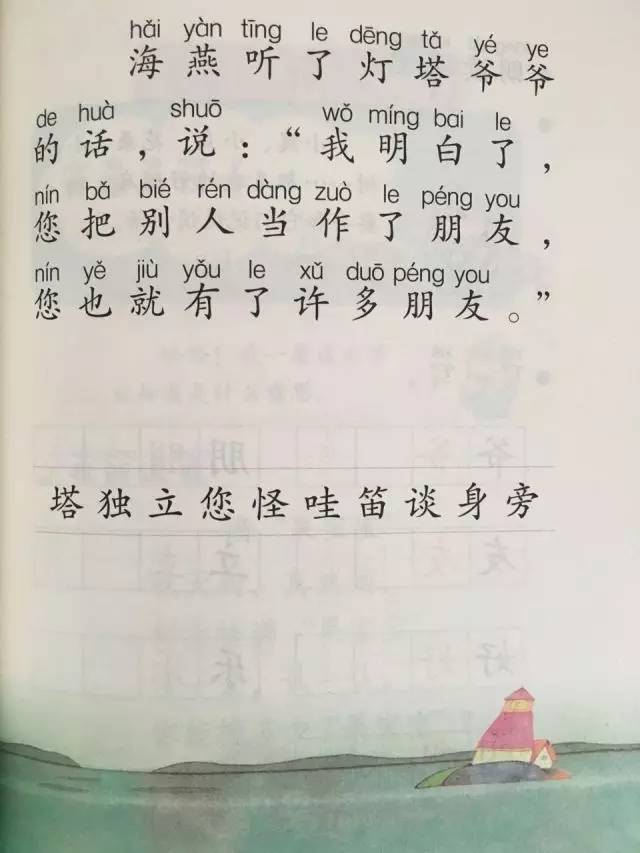 hǎi yàn tīng le dēng tǎ yé ye
海燕听了灯塔爷爷
de huà shuō wǒ míng bai le
的话，说：“我明白了，
nín bǎ bié rén dàng zuò le péng you
您把别人当作了朋友，
nín yě jiù yǒu le xǔ duō péng you
您也就有了许多朋友。”
塔独立您怪哇笛谈身旁